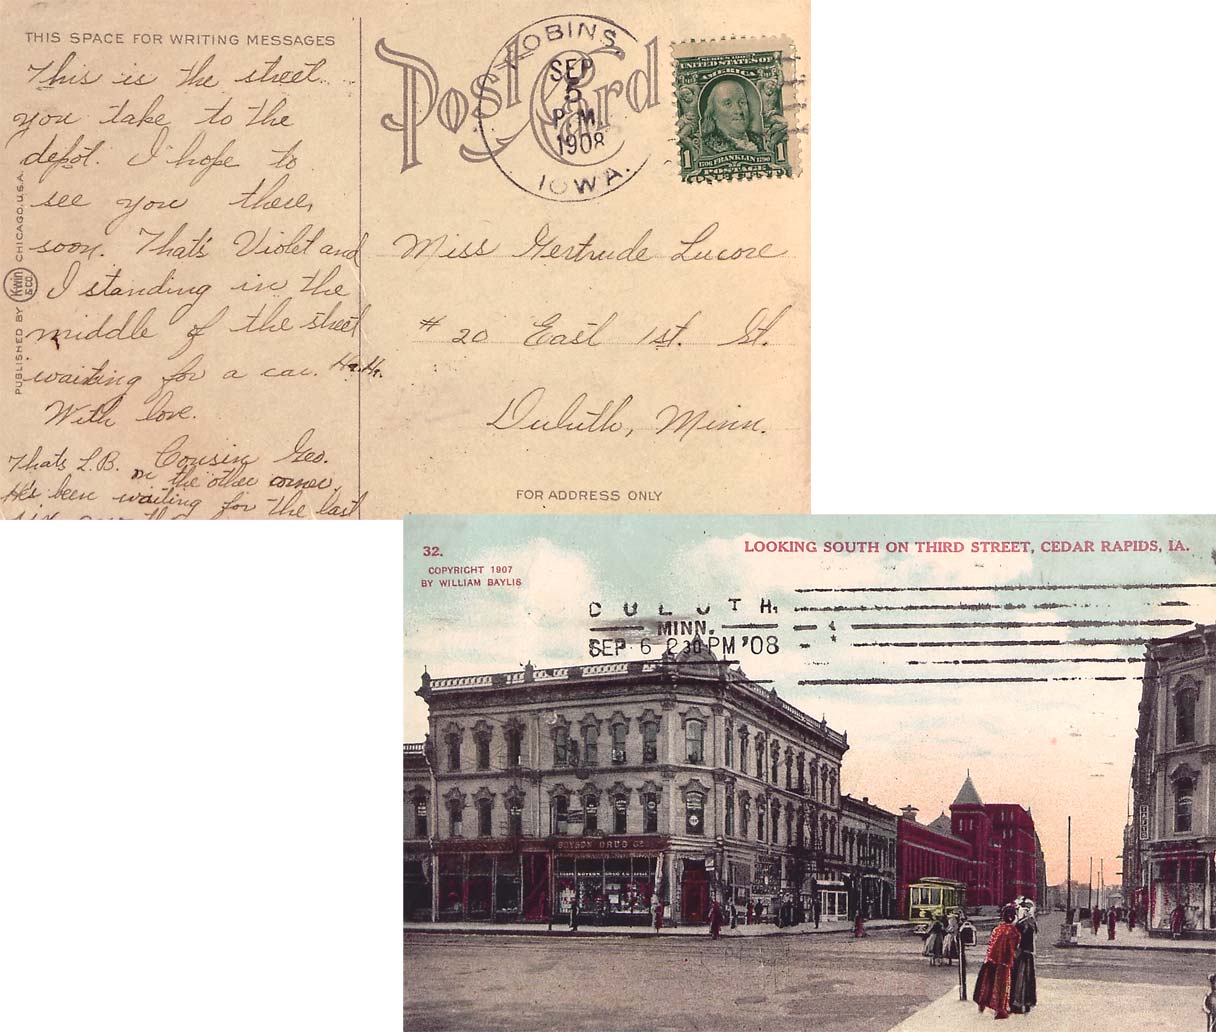 THIS SPACE FOR WRITING MESSAGES
This is the street
you take to the
depot. I hope to
see you there
soon. That's Violet and
I standing in the
middle of the street
waiting for a car. Ha. Ha.
With love.
Cousin Geo.
Thats L.B. on the other corner.
He's been waiting for the last
PUBLISHED BY Kwin & Co. CHICAGO. U.S.A.
Post Card
ROBINS.
SEP
5
P.M.
1908
IOWA.
SERIES 1902
UNITED STATES OF
AMERICA
1706 FRANKLIN 1790
1
POSTAGE
Miss Gertrude Lucore
# 20 East 1st. St.
Duluth, Minn.
FOR ADDRESS ONLY
32.
COPYRIGHT 1907
BY WILLIAM BAYLIS
LOOKING SOUTH ON THIRD STREET, CEDAR RAPIDS, IA.
DULUTH,
MINN.
SEP 6 2 30 PM '08
BOYSON DRUG CO